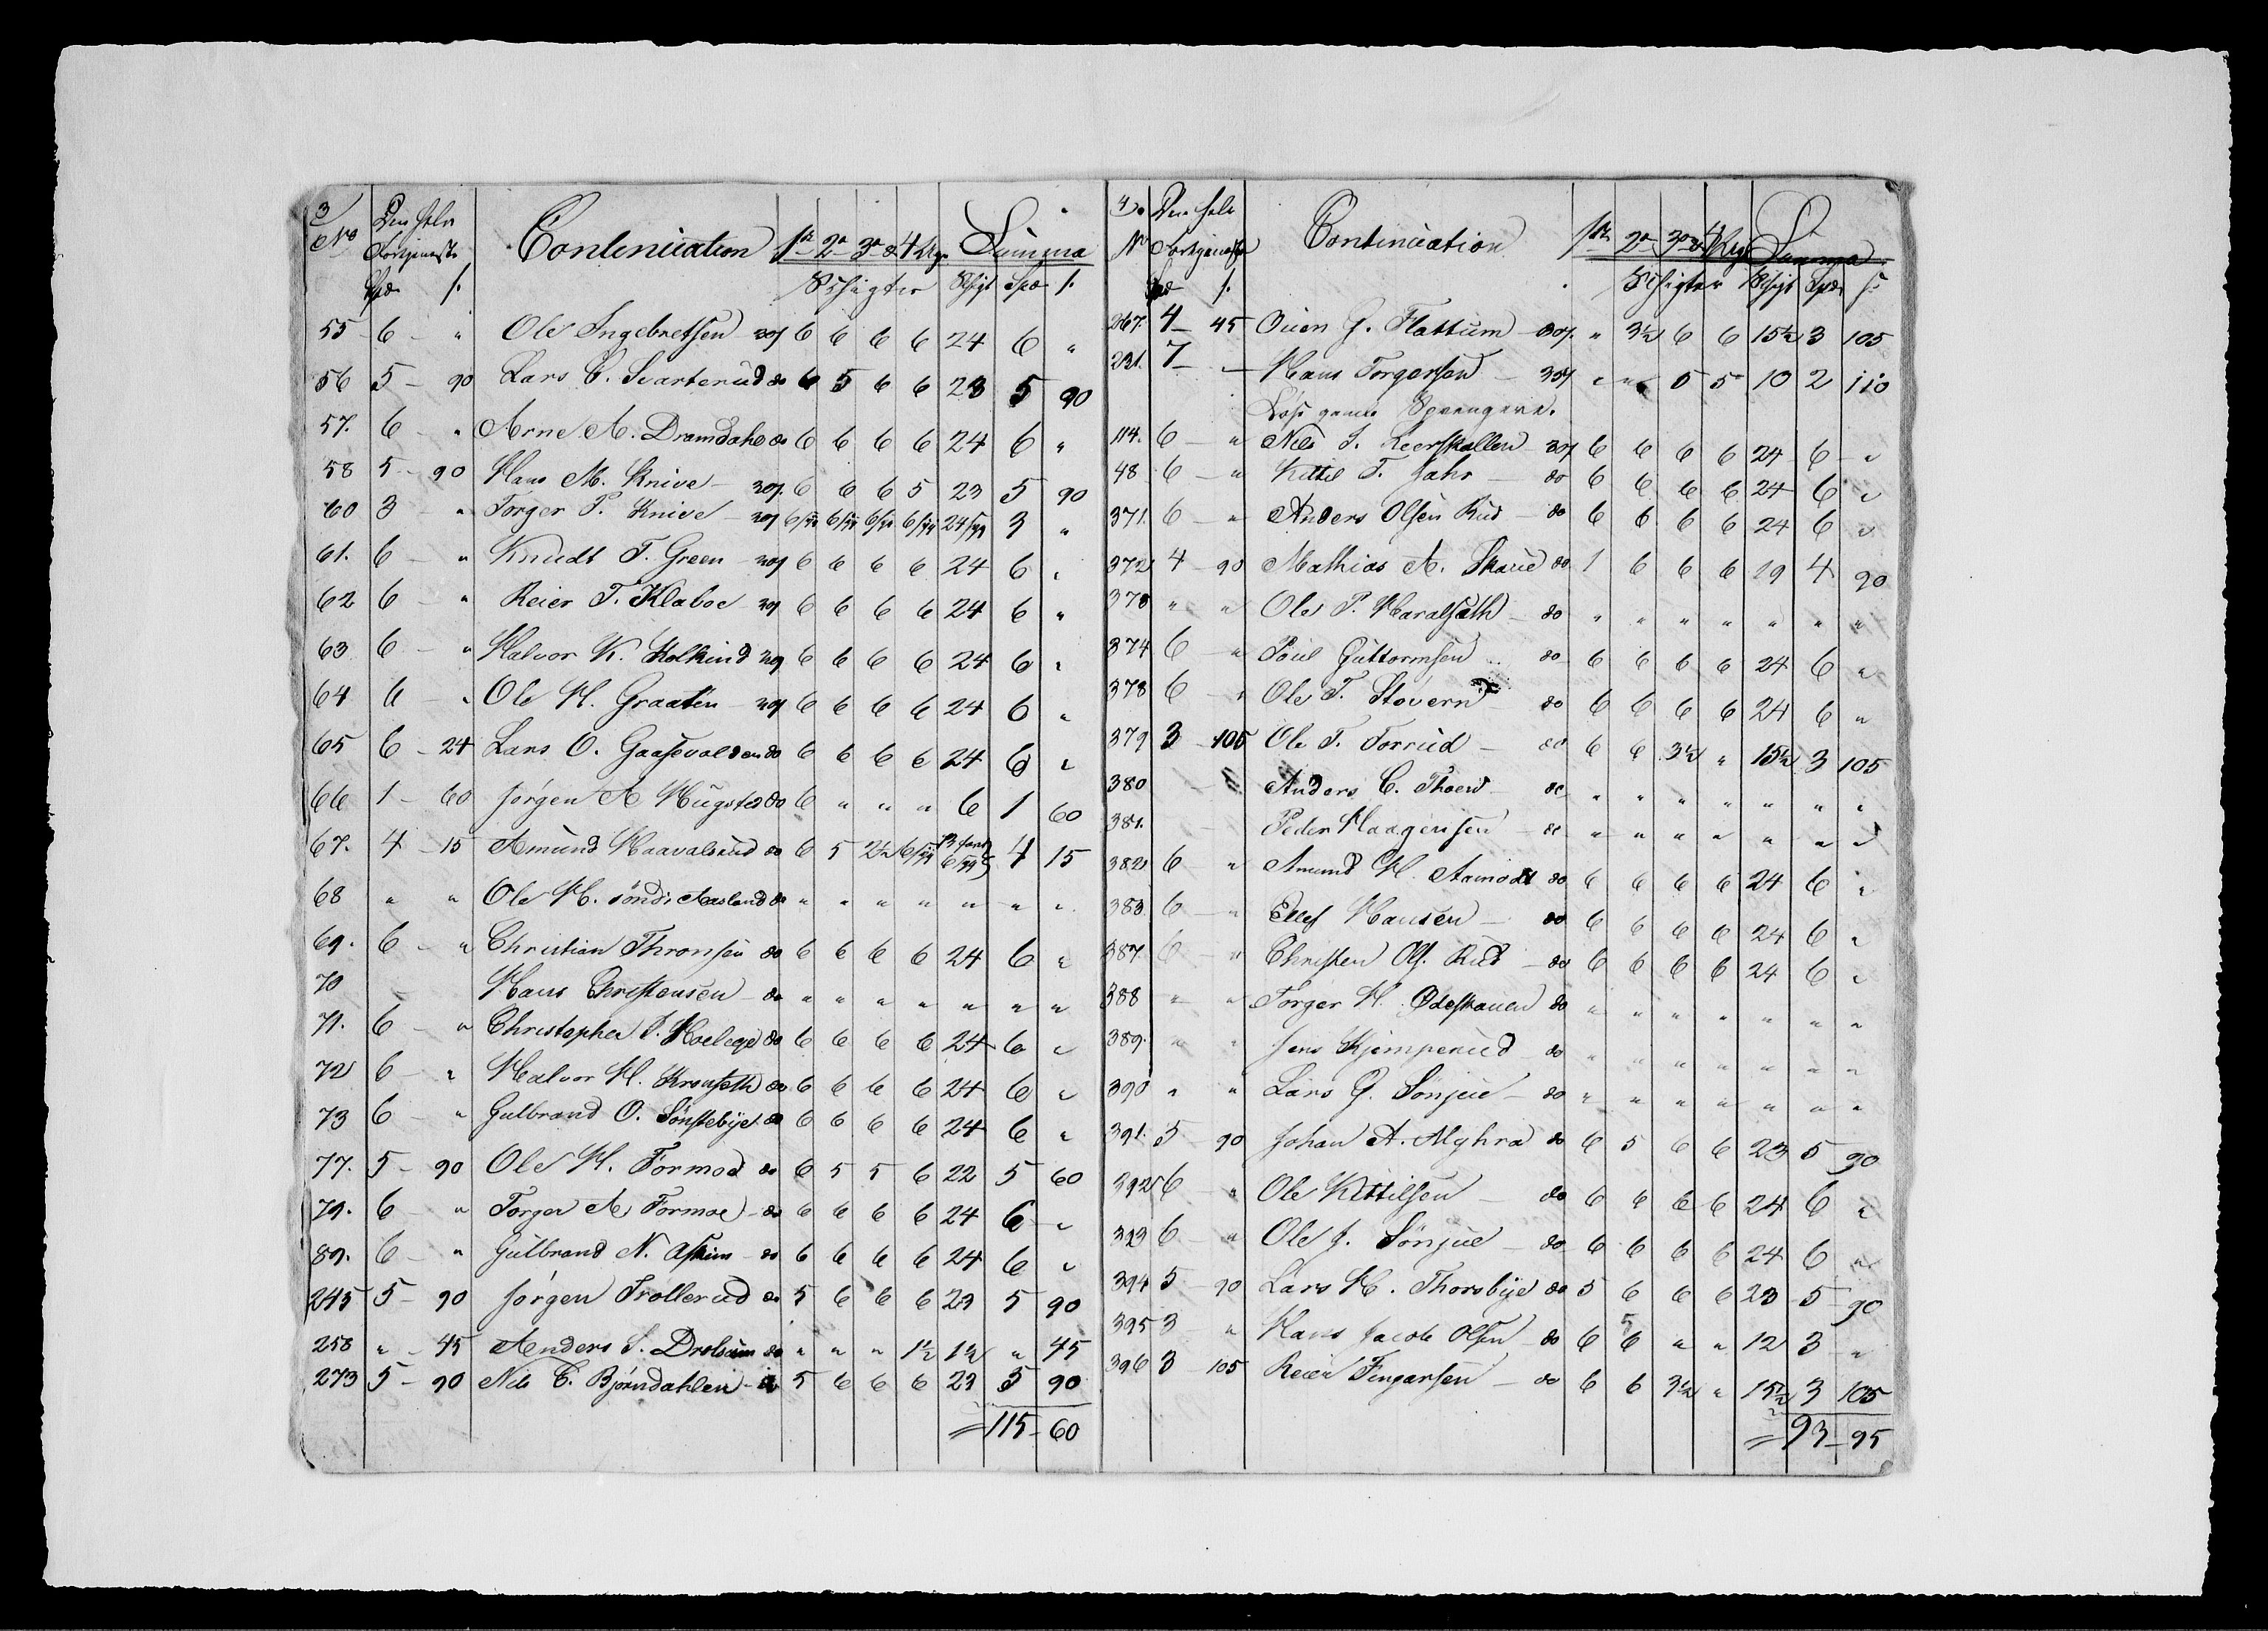 3
No Den hele Fortjeneste Continuation 1ste 2den 3de & 4 Uge Summa
Spd s. Schigter Schigt Spd s.
55 6 - " Ole Ingebretsen 30s 6 6 6 6 24 6 "
56 5 - 90 Lars C. Svarterud do 6 5 6 6 23 5 90
57. 6 - " Arne A. Dramdahl do 6 6 6 6 24 6 "
58 5 - 90 Hans M. Knive - 30s. 6 6 6 5 23 5 90
60 3 - " Torger P. Knive - 6 6 6 6 24 3 "
61. 6 - " Knudt T. Green 6 6 6 6 24 6 "
62 6 - " Reier T. Klaboe 6 6 6 6 24 6 "
63 6 - " Halvor K. Kolkind 6 6 6 6 24 6 "
64 6 - " Ole H. Graaten 6 6 6 6 24 6 "
65 6 - 24 Lars O. Gaasevolden do 6 6 6 6 24 6 "
66 1 - 60 Jørgen A Hugsted do 6 " " " 6 1 60
67. 4 - 15 Amund Haavalsrud do 6 5 2½ 6 13 6 4 15
68 " " Ole H. søndr Aasland do " " " " " " "
69. 6 - " Christian Thronsen do 6 6 6 6 24 6 "
70 Hans Christensen - do " " " " " " "
71. 6 - " Christopher Hoelege do 6 6 6 6 24 6 "
72 6 - " Halvor H. Kronseth do 6 6 6 6 24 6 "
73 6 - " Gulbrand O. Sønstebye do 6 6 6 6 24 6 "
77. 5 - 90 Ole H. Formod do 6 5 5 6 22 5 60
79. 6 - " Torger A Formoe - do 6 6 6 6 24 6 "
89. 6 - " Gulbrand N. Askim - do 6 6 6 6 24 6 "
245 5 - 90 Jørgen Trollerud do 5 6 6 6 23 5 90
258 " - 45 Anders S. Drolsum do " " " 1½ 1½ " 45
273 5 - 90 Nils C. Bjørndahlen - do 5 6 6 6 23 5 90
= 115 - 60
4.
No Den hele Fortjeneste Continuation 1ste 2den 3de & 4 Uge Summa
Spd s. Schigter Schigt Spd s.
267. 4 - 45 Ouen G. Flattum - 30s. " 3½ 6 6 15½ 3 105
231. 7 - - Hans Torgersen - " " 5 5 10 2 110
Løse Sprengere.
114. 6 - " Nils S. Leerskallen 30s 6 6 6 6 24 6 "
48 6 - " Kittil T. Jahr - do 6 6 6 6 24 6 "
371. 6 - " Anders Olsen Rud - do 6 6 6 6 24 6 "
372 4 - 90 Mathias A. Skarud do 1 6 6 6 19 4 90
373 " " Ole P. Haralseth - do " " " " " " "
374 6 - " Poul Guttormsen do 6 6 6 6 24 6 "
378 6 - " Ole T. Stovern do 6 6 6 6 24 6 "
379 3 - 105 Ole T. Forrud - do 6 6 3½ " 15½ 3 105
380 Anders C. Thoen do " " " " " " "
381. Peder Haagensen - do " " " " " " "
382 6 - " Amund H. Aamodt do 6 6 6 6 24 6 "
383. 6 - " Ellef Hansen - do 6 6 6 6 24 6 "
387. 6 - " Christen Ols. Rud - do 6 6 6 6 24 6 "
388 " " Torger H. Ødeskauen do " " " " " " "
389. " " Jens Kjemperud - do " " " " " " "
390 " " Lars G. Sønjue - do " " " " " " "
391. 5 - 90 Johan A. Myhra do 6 5 6 6 23 5 90
392 6 - " Ole Kittilsen - do 6 6 6 6 24 6 "
393 6 - " Ole J. Sønjue - do 6 6 6 6 24 6 "
394 5 - 90 Lars H. Thorsbye do 5 6 6 6 23 5 90
395 3 - " Hans Jacob Olsen - do 6 6 " " 12 3 "
396 3 - 105 Reier Fingarsen - do 6 6 3½ " 15½ 3 105
= 93 - 95